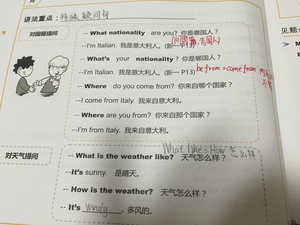 语法重点：特殊疑问句
对国籍提问
-- What nationality are you? 你是哪国人？
-- I'm Italian. 我是意大利人。(新一 P13)
-- What's your nationality? 你是哪国人？
be from = come from
-- I'm Italian. 我是意大利人。(新一 P13)
-- Where do you come from? 你来自哪个国家？
-- I come from Italy. 我来自意大利。
-- Where are you from? 你来自那个国家？
-- I'm from Italy. 我来自意大利。
对天气提问
-- What is the weather like? 天气怎么样？
What like = How 怎么样
-- It's sunny. 是晴天。
-- How is the weather? 天气怎么样？
-- It's windy. 多风的。
见题